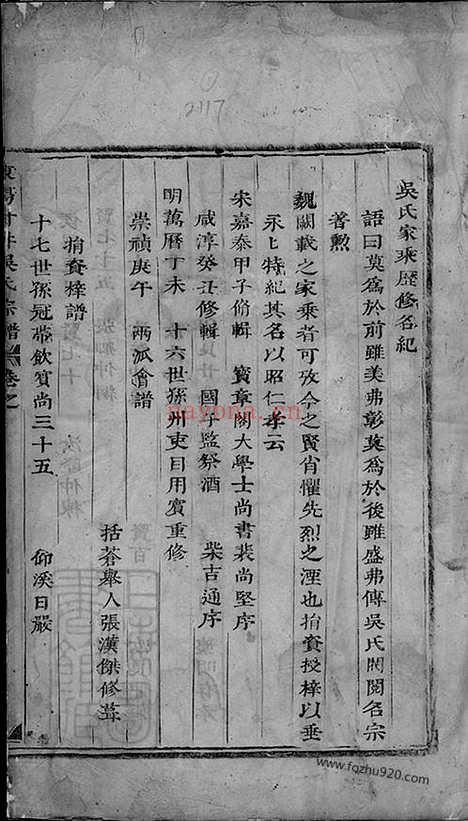 吳氏家乘歷修名紀
語曰莫為於前雖美弗彰莫為於後雖盛弗傳吳氏閥閱名宗
著勲
魏闕載之家乘者可攷今之賢肖懼先烈之湮也捐貲授梓以垂
永匕特紀其名以昭仁孝云
宋嘉泰甲子脩輯 寶章閣大學士尚書裴尚堅序
咸淳癸丑修輯 國子監祭酒 柴吉通序
明萬曆丁未 十六世孫州吏目用賓重修
崇禎庚午 兩派會譜
括蒼舉人張漢傑修葺
捐貲梓譜
十七世孫冠帶飲賓尚三十五 仰溪日嚴
吳氏宗譜 卷之
2117
nayona.cn
www.fqzhu920.com